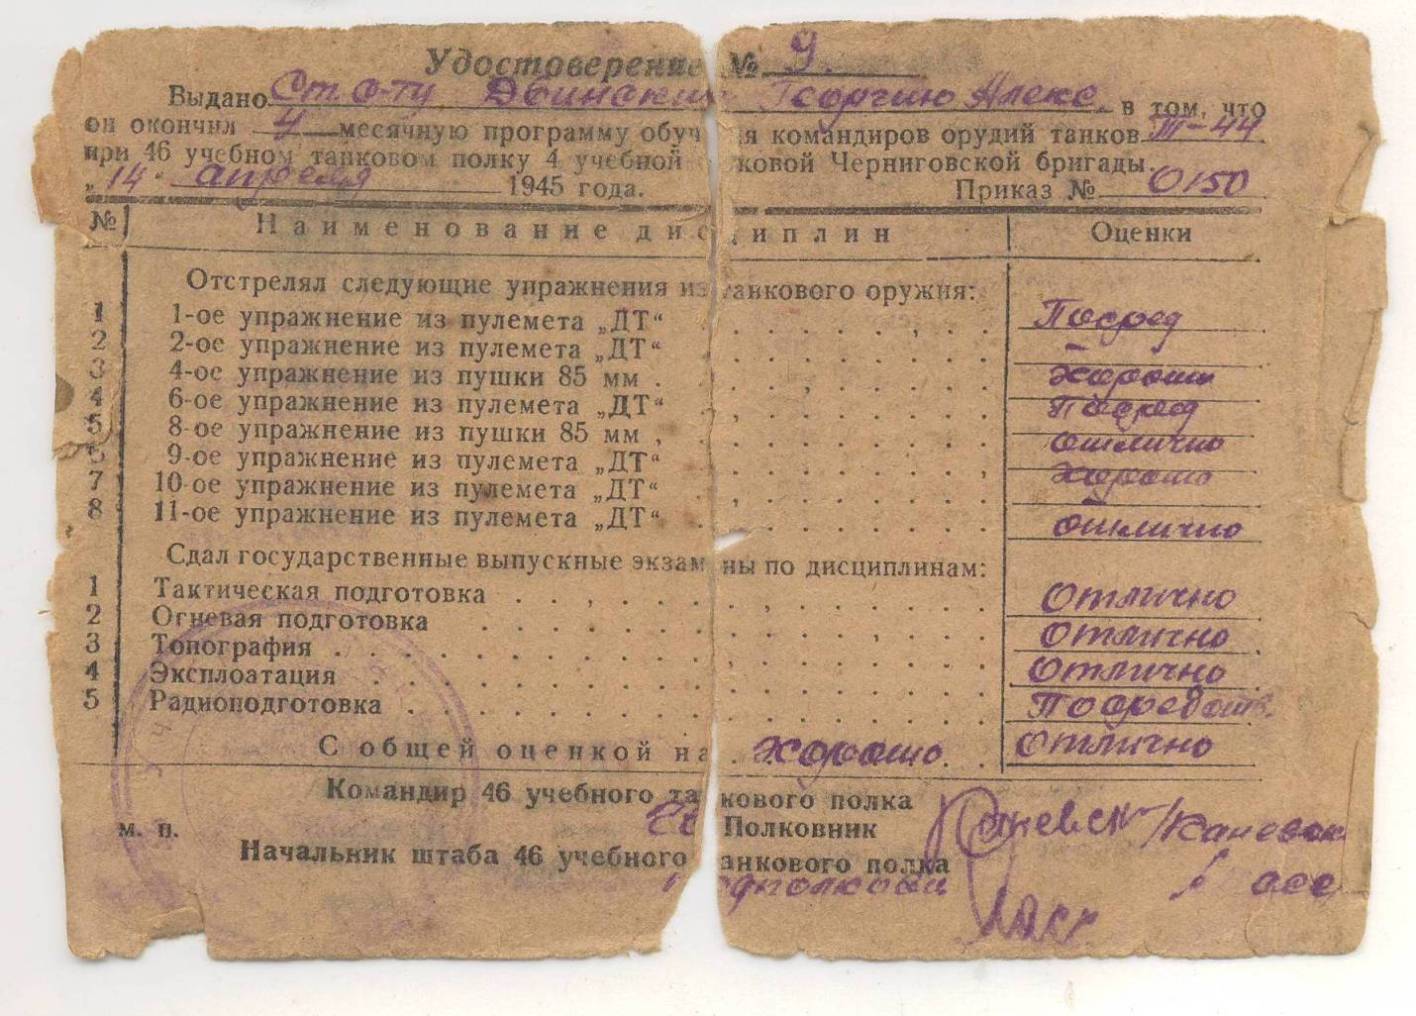 Удостоверение № 9.
Выдано Ст. с-ту Двинским Георгию Алекс. в том, что
он окончил 4 месячную программу обуч я командиров орудий танков Т-44
при 46 учебном танковом полку 4 учебной ковой Черниговской бригады.
„14. апреля 1945 года. Приказ № 0150
№ Наименование дисциплин Оценки
Отстрелял следующие упражнения из танкового оружия:
1 1-ое упражнение из пулемета „ДТ“ . . . . . . . . Посред
2 2-ое упражнение из пулемета „ДТ“ . . . . . . . .
3 4-ое упражнение из пушки 85 мм . . . . . . . . Хорошо
4 6-ое упражнение из пулемета „ДТ“ . . . . . . . . Посред
5 8-ое упражнение из пушки 85 мм . . . . . . . . отлично
6 9-ое упражнение из пулемета „ДТ“ . . . . . . . . Хорошо
7 10-ое упражнение из пулемета „ДТ“ . . . . . . . .
8 11-ое упражнение из пулемета „ДТ“ . . . . . . . . отлично
Сдал государственные выпускные экзамены по дисциплинам:
1 Тактическая подготовка . . . . . . . . Отлично
2 Огневая подготовка . . . . . . . . Отлично
3 Топография . . . . . . . . Отлично
4 Эксплоатация . . . . . . . . Посредств.
5 Радиоподготовка . . . . . . . . Отлично
С общей оценкой на хорошо.
Командир 46 учебного та нкового полка
Полковник Каневск /Каневск
м. п.
Начальник штаба 46 учебного танкового полка
Подполковн